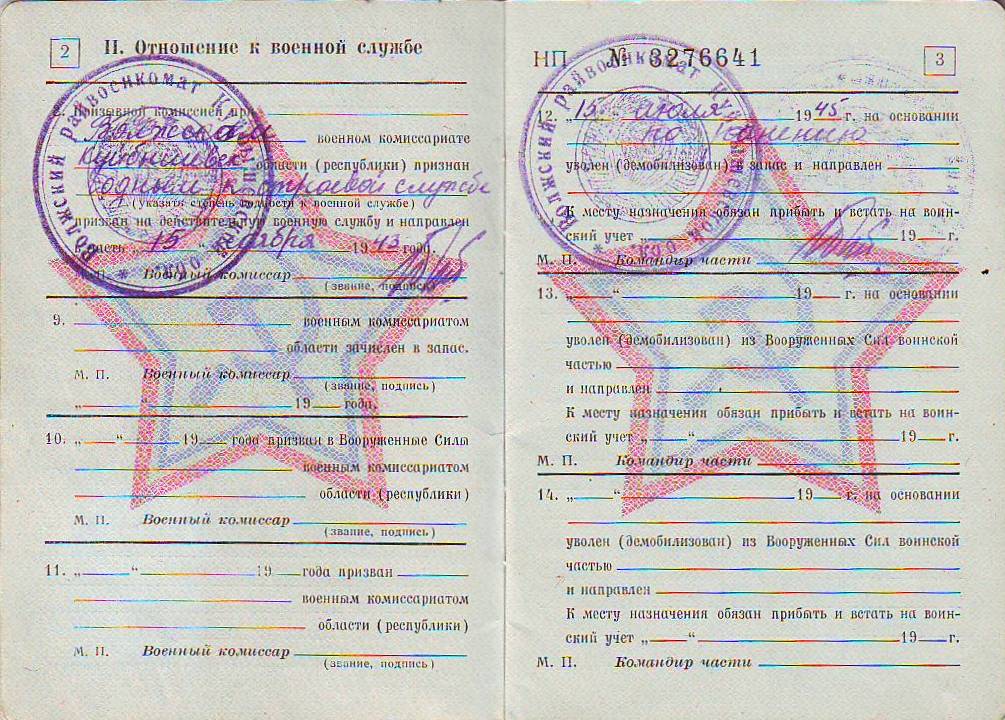 2
II. Отношение к военной службе
8. Призывной комиссией при
Волжском
военном комиссариате
Куйбышевск области (республики) признан
Годным к строевой службе
(указать степень годности к военной службе)
призван на действительную военную службу и направлен
в часть „ 15 “ февраля 1943 года.
М. П. Военный комиссар
(звание, подпись)
9. военным комиссариатом
области зачислен в запас.
М. П. Военный комиссар
(звание, подпись)
„ “ 19 года.
10. „ “ 19 года призван в Вооруженные Силы
военным комиссариатом
области (республики)
М. П. Военный комиссар
(звание, подпись)
11. „ “ 19 года призван
военным комиссариатом
области (республики)
М. П. Военный комиссар
(звание, подпись)
Волжский райвоенкомат
НП № 3276641
3
12. „ 15 июля 1945 г. на основании
по ранению
уволен (демобилизован) в запас и направлен
К месту назначения обязан прибыть и встать на воин-
ский учет „ “ 19 г.
М. П. Командир части
13. „ “ 19 г. на основании
уволен (демобилизован) из Вооруженных Сил воинской
частью
и направлен
К месту назначения обязан прибыть и встать на воин-
ский учет „ “ 19 г.
М. П. Командир части
14. „ “ 19 г. на основании
уволен (демобилизован) из Вооруженных Сил воинской
частью
и направлен
К месту назначения обязан прибыть и встать на воин-
ский учет „ “ 19 г.
М. П. Командир части
Волжский райвоенкомат